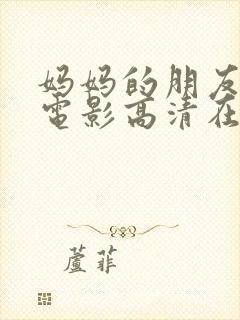 妈妈的朋友
電影高清在
蘆菲